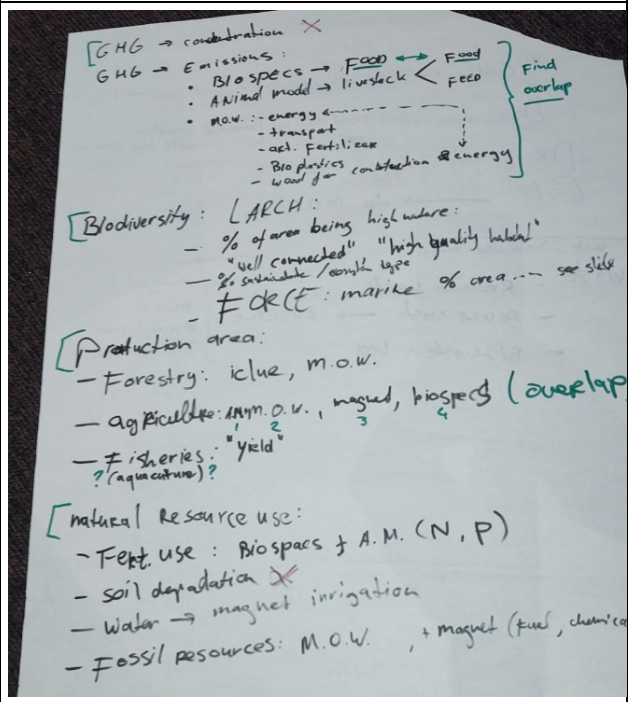 [GHG → concentration ✗
GHG → Emissions:
• Biospecs → Food ↔ Food
• Animal model → livestock < FEED
Find overlap
• M.O.W. : - energy
- transport
- art. Fertilizer
- Bio plastics
- wood for construction & energy
[Biodiversity: LARCH:
- % of area being high nature:
"well connected" "high quality habitat"
- % sustainable / type
- FORCE: marine % area .... see slide
[Production area:
- Forestry: iclue, M.O.W.
- agriculture: ANM. O.W., magnet, biospecs (overlap
1 2 3 4
- Fisheries: "Yield"
? (aquaculture) ?
[natural Resource use:
- Fert. use : Biospacs + A.M. (N, P)
- soil degradation ✗
- Water → magnet irrigation
- Fossil resources: M.O.W. , + magnet (fuel, chemica